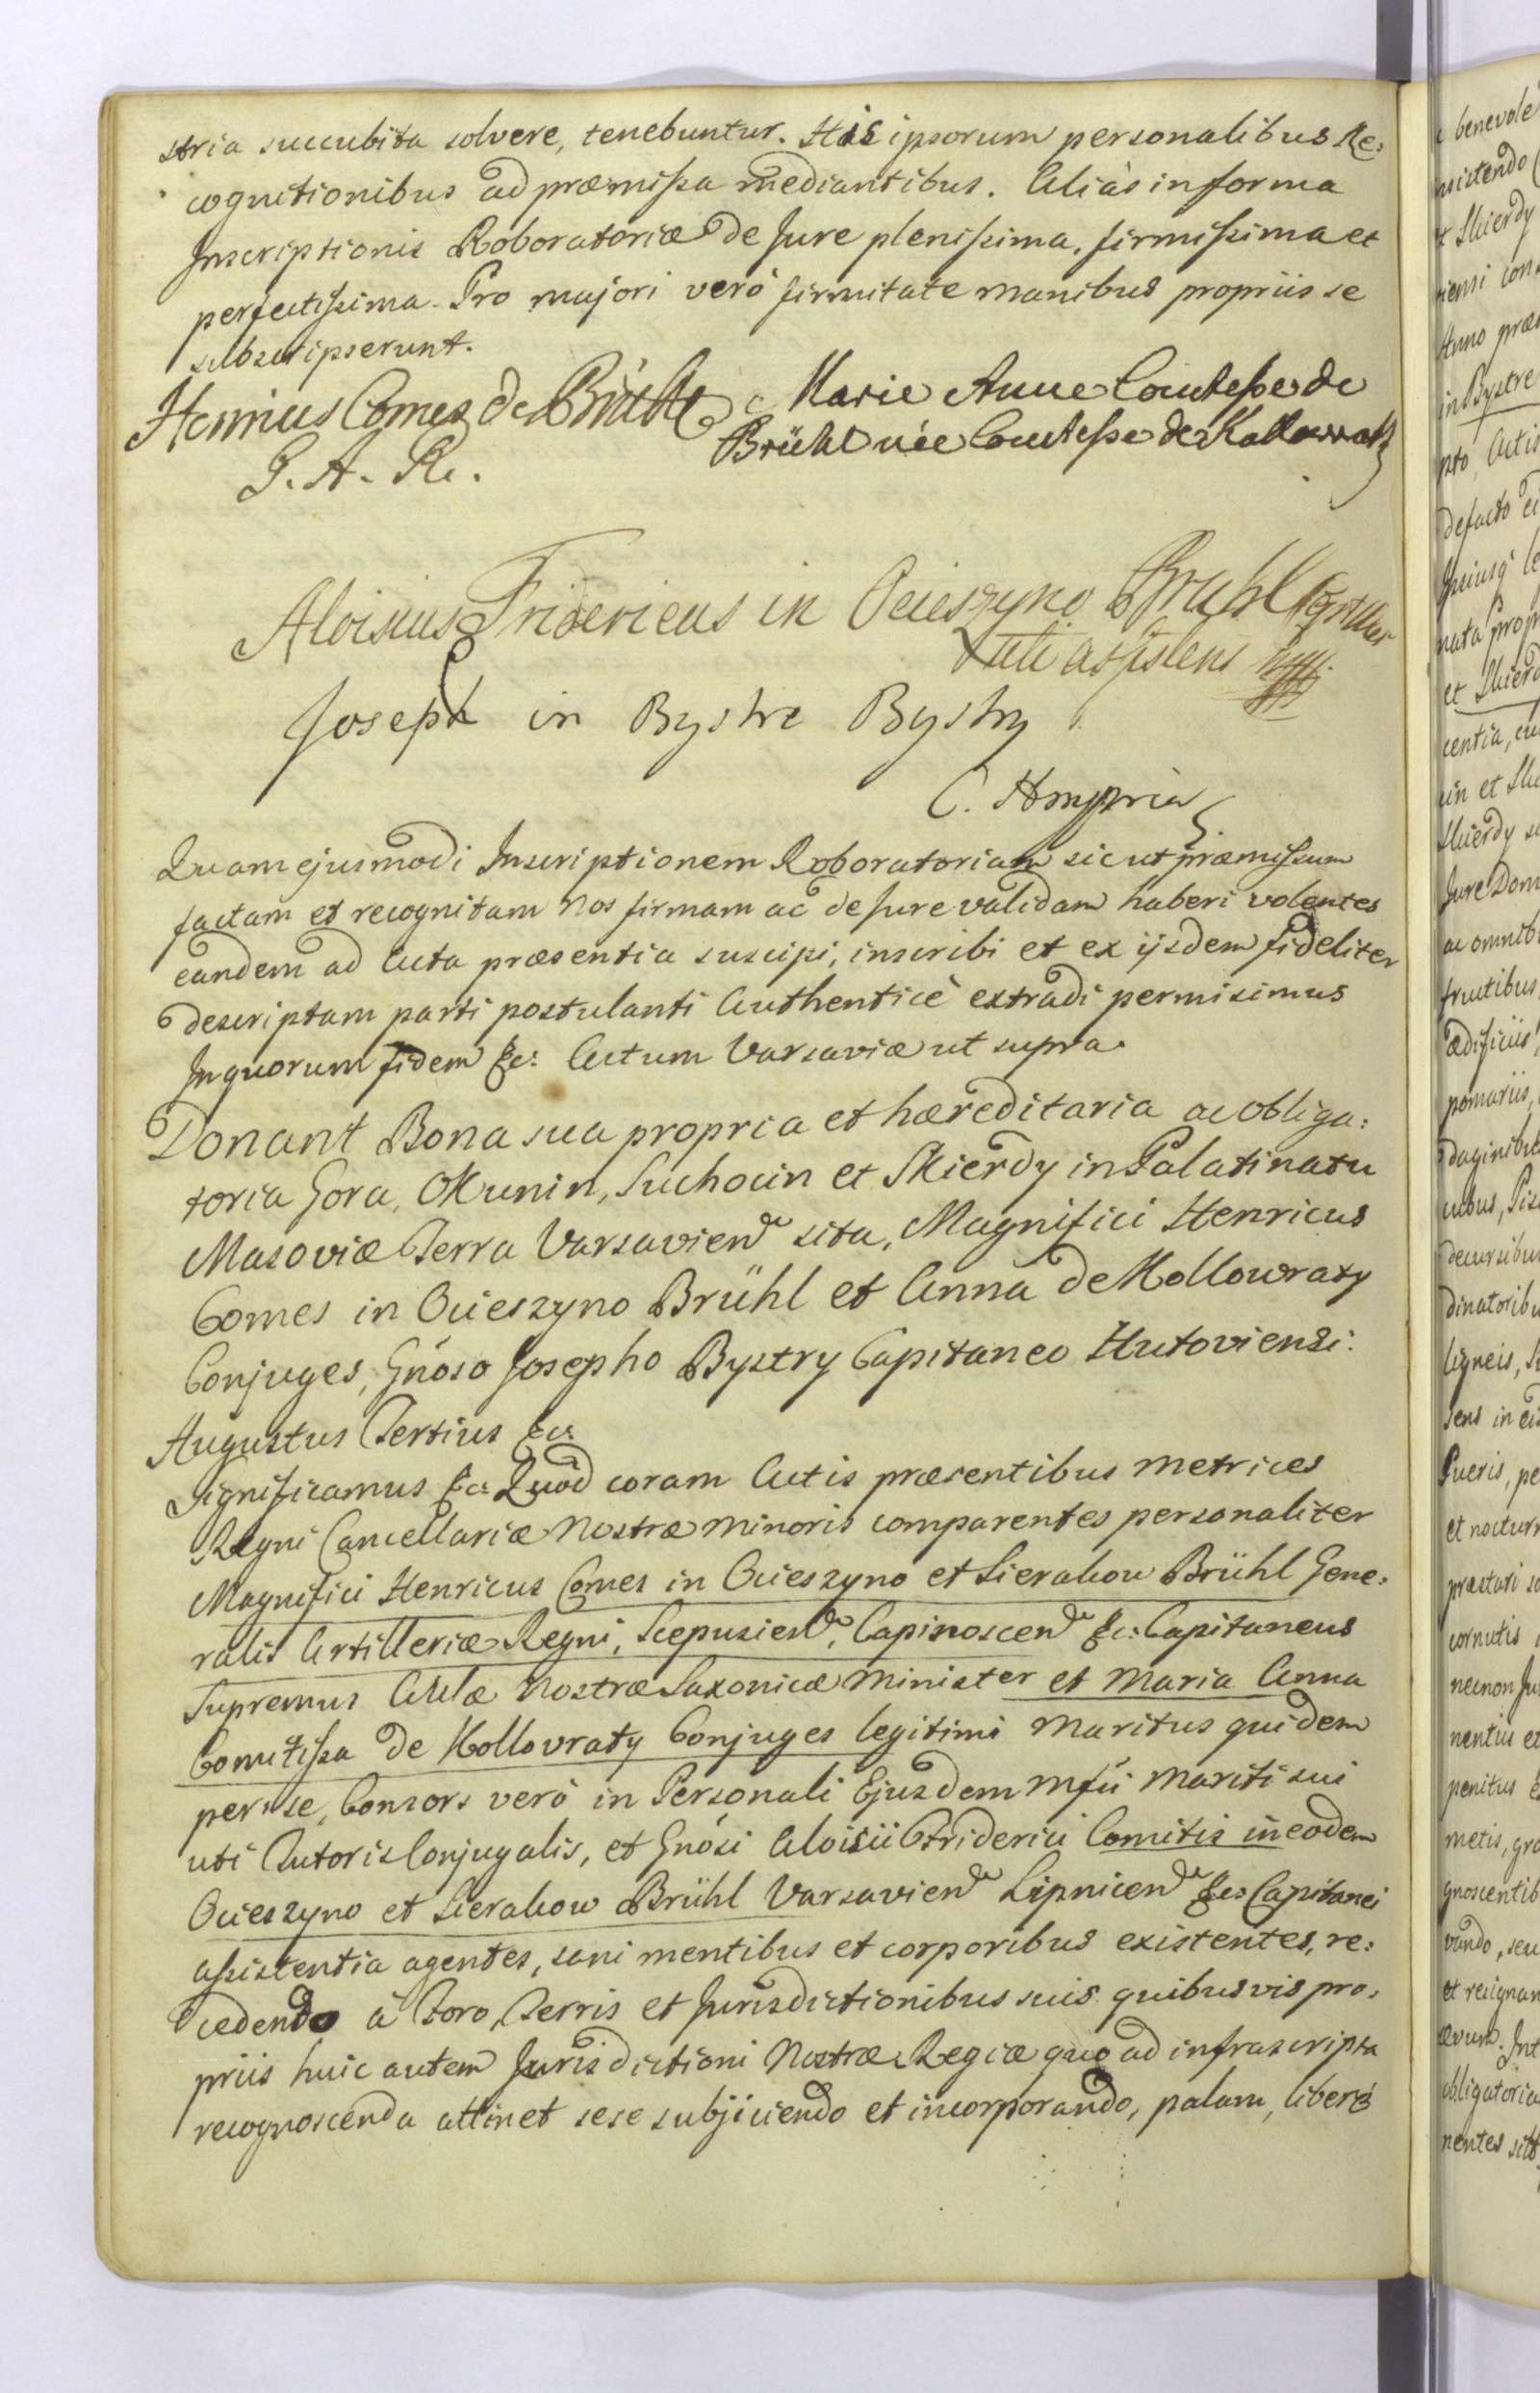 stria succubita solvere, tenebuntur. His ipsorum personalibus Re:
cognitionibus ad præmissa mediantibus. Alias in forma
Inscriptionis Roboratoriæ de Jure plenissima, firmissima et
perfectissima. Pro majori verò firmitate manibus propriis se
subscripserunt.
Henricus Comes de Brühl
G. A. R.
Marie Anne Comtesse de
Brühl née Comtesse de Kollowrath
Aloisius Fridericus in Ocieszyno Brühl
uti assistens
Joseph in Bystre Bystry
C. H mppria
Quam ejusmodi Inscriptionem Roboratoriam sicut præmissum
factam et recognitam Nos firmam ac de Jure validam haberi volentes
eandem ad Acta præsentia suscipi, inscribi et ex ijsdem fideliter
descriptam parti postulanti Authenticè extradi permisimus
In quorum fidem &c: Actum Varsaviæ ut supra.
Donant Bona sua propria et hæreditaria ac obliga:
toria Gora, Okunin, Suchocin et Skierdy in Palatinatu
Masoviæ Terra Varsavien sita, Magnifici Henricus
Comes in Ocieszyno Brühl et Anna de Kollowraty
Conjuges, Gnoso Josepho Bystry Capitaneo Hutoviensi.
Augustus Tertius &c:
Significamus &c: Quod coram Actis præsentibus Metrices
Regni Cancellariæ Nostræ Minoris comparentes personaliter
Magnifici Henricus Comes in Ocieszyno et Sierakow Brühl Gene:
ralis Artilleriæ Regni, Scepusien, Capinoscen &c: Capitaneus
Supremus Aulæ Nostræ Saxonicæ Minister et Maria Anna
Comitissa de Kollovraty Conjuges legitimi Maritus quidem
per se, Consors verò in Personali Ejusdem Mfci Mariti sui
uti Tutoris Conjugalis, et Gnosi Aloisii Friderici Comitis in eodem
Ocieszyno et Sierakow Brühl Varsavien Lipnicen &c: Capitanei
assistentia agentes, sani mentibus et corporibus existentes, re:
cedendo à Foro, Terris et Jurisdictionibus suis quibusvis pro:
priis huic autem Jurisdictioni Nostræ Regiæ quo ad infrascripta
recognoscenda attinet sese subjiciendo et incorporando, palam, liberè